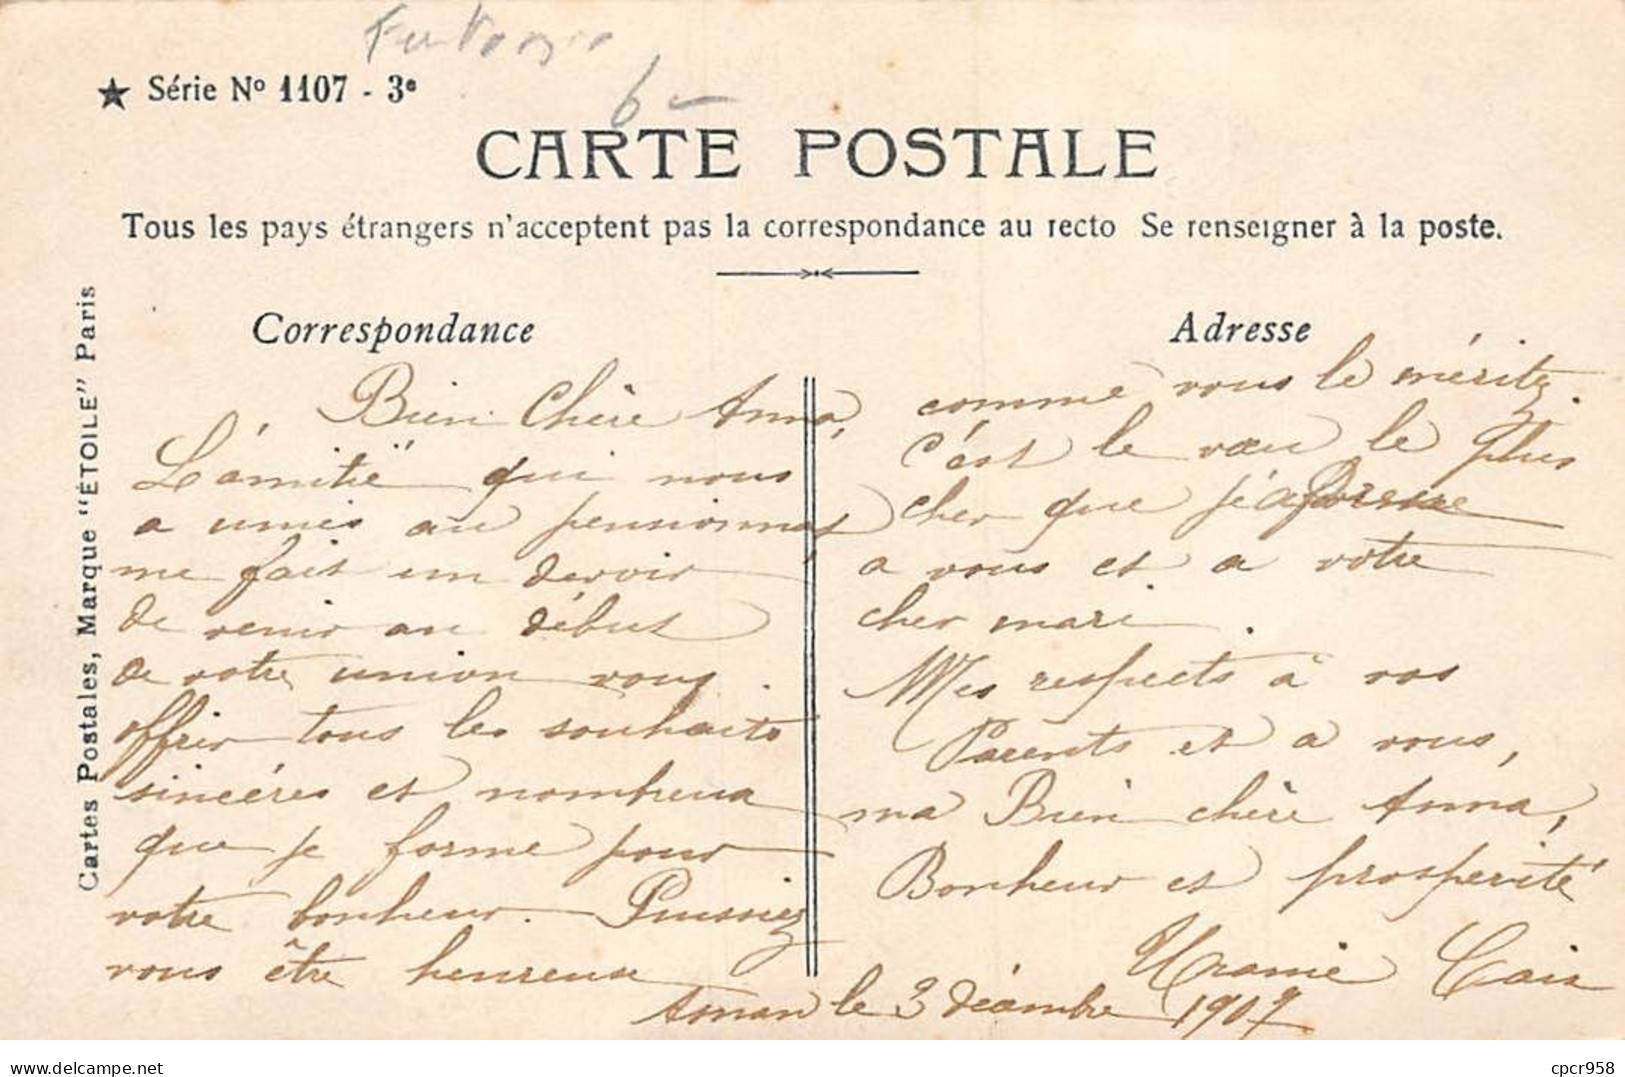 Fantaisie
6-
★ Série Nº 1107 - 3e
CARTE POSTALE
Tous les pays étrangers n'acceptent pas la correspondance au recto Se renseigner à la poste.
Cartes Postales, Marque "ÉTOILE" Paris
Correspondance
Bien Chère Anna,
L'amitié qui nous
a unies au pensionnat
me fait un devoir
de venir au début
de votre union vous
offrir tous les souhaits
sincères et nombreux
que je forme pour
votre bonheur. Puissiez
vous être heureux
Adresse
comme vous le méritez.
C'est le vœu le plus
cher que j'adresse
a vous et a votre
cher mari.
Mes respects à vos
Parents et a vous,
ma Bien chère Anna,
Bonheur et prospérité
Uranie Cair
le 3 décembre 1907
delcampe.net
cpcr958